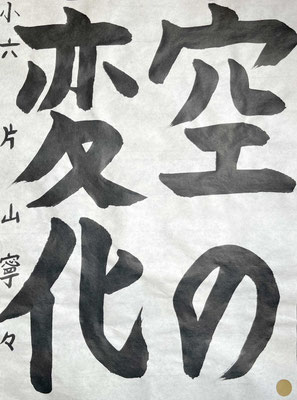 空の
変化
小六 片山寧々